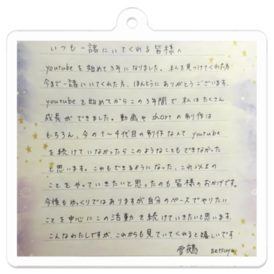 いつも一緒にいてくれる皆様へ
youtubeを始めて3年になりました。まんを見つけてくれた方
今まで一緒にいてくれた方、ほんとうにありがとうございます。
youtubeを始めてからこの3年間でまんはたくさん
成長ができました。動画やshortの制作は
もちろん、今の1〜4代目の制作なんてyoutube
を続けていなかったらこのようなこともできなかった
と思います。これもできるようになった、これ以上の
ことをやっていきたいと思ったのも皆様のおかげです。
今後もゆっくりではありますが自分のペースでやりたい
ことを中心にこの活動を続けていきたいと思います。
こんなわたしですが、これからも見ていてくれると嬉しいです
雪鶴